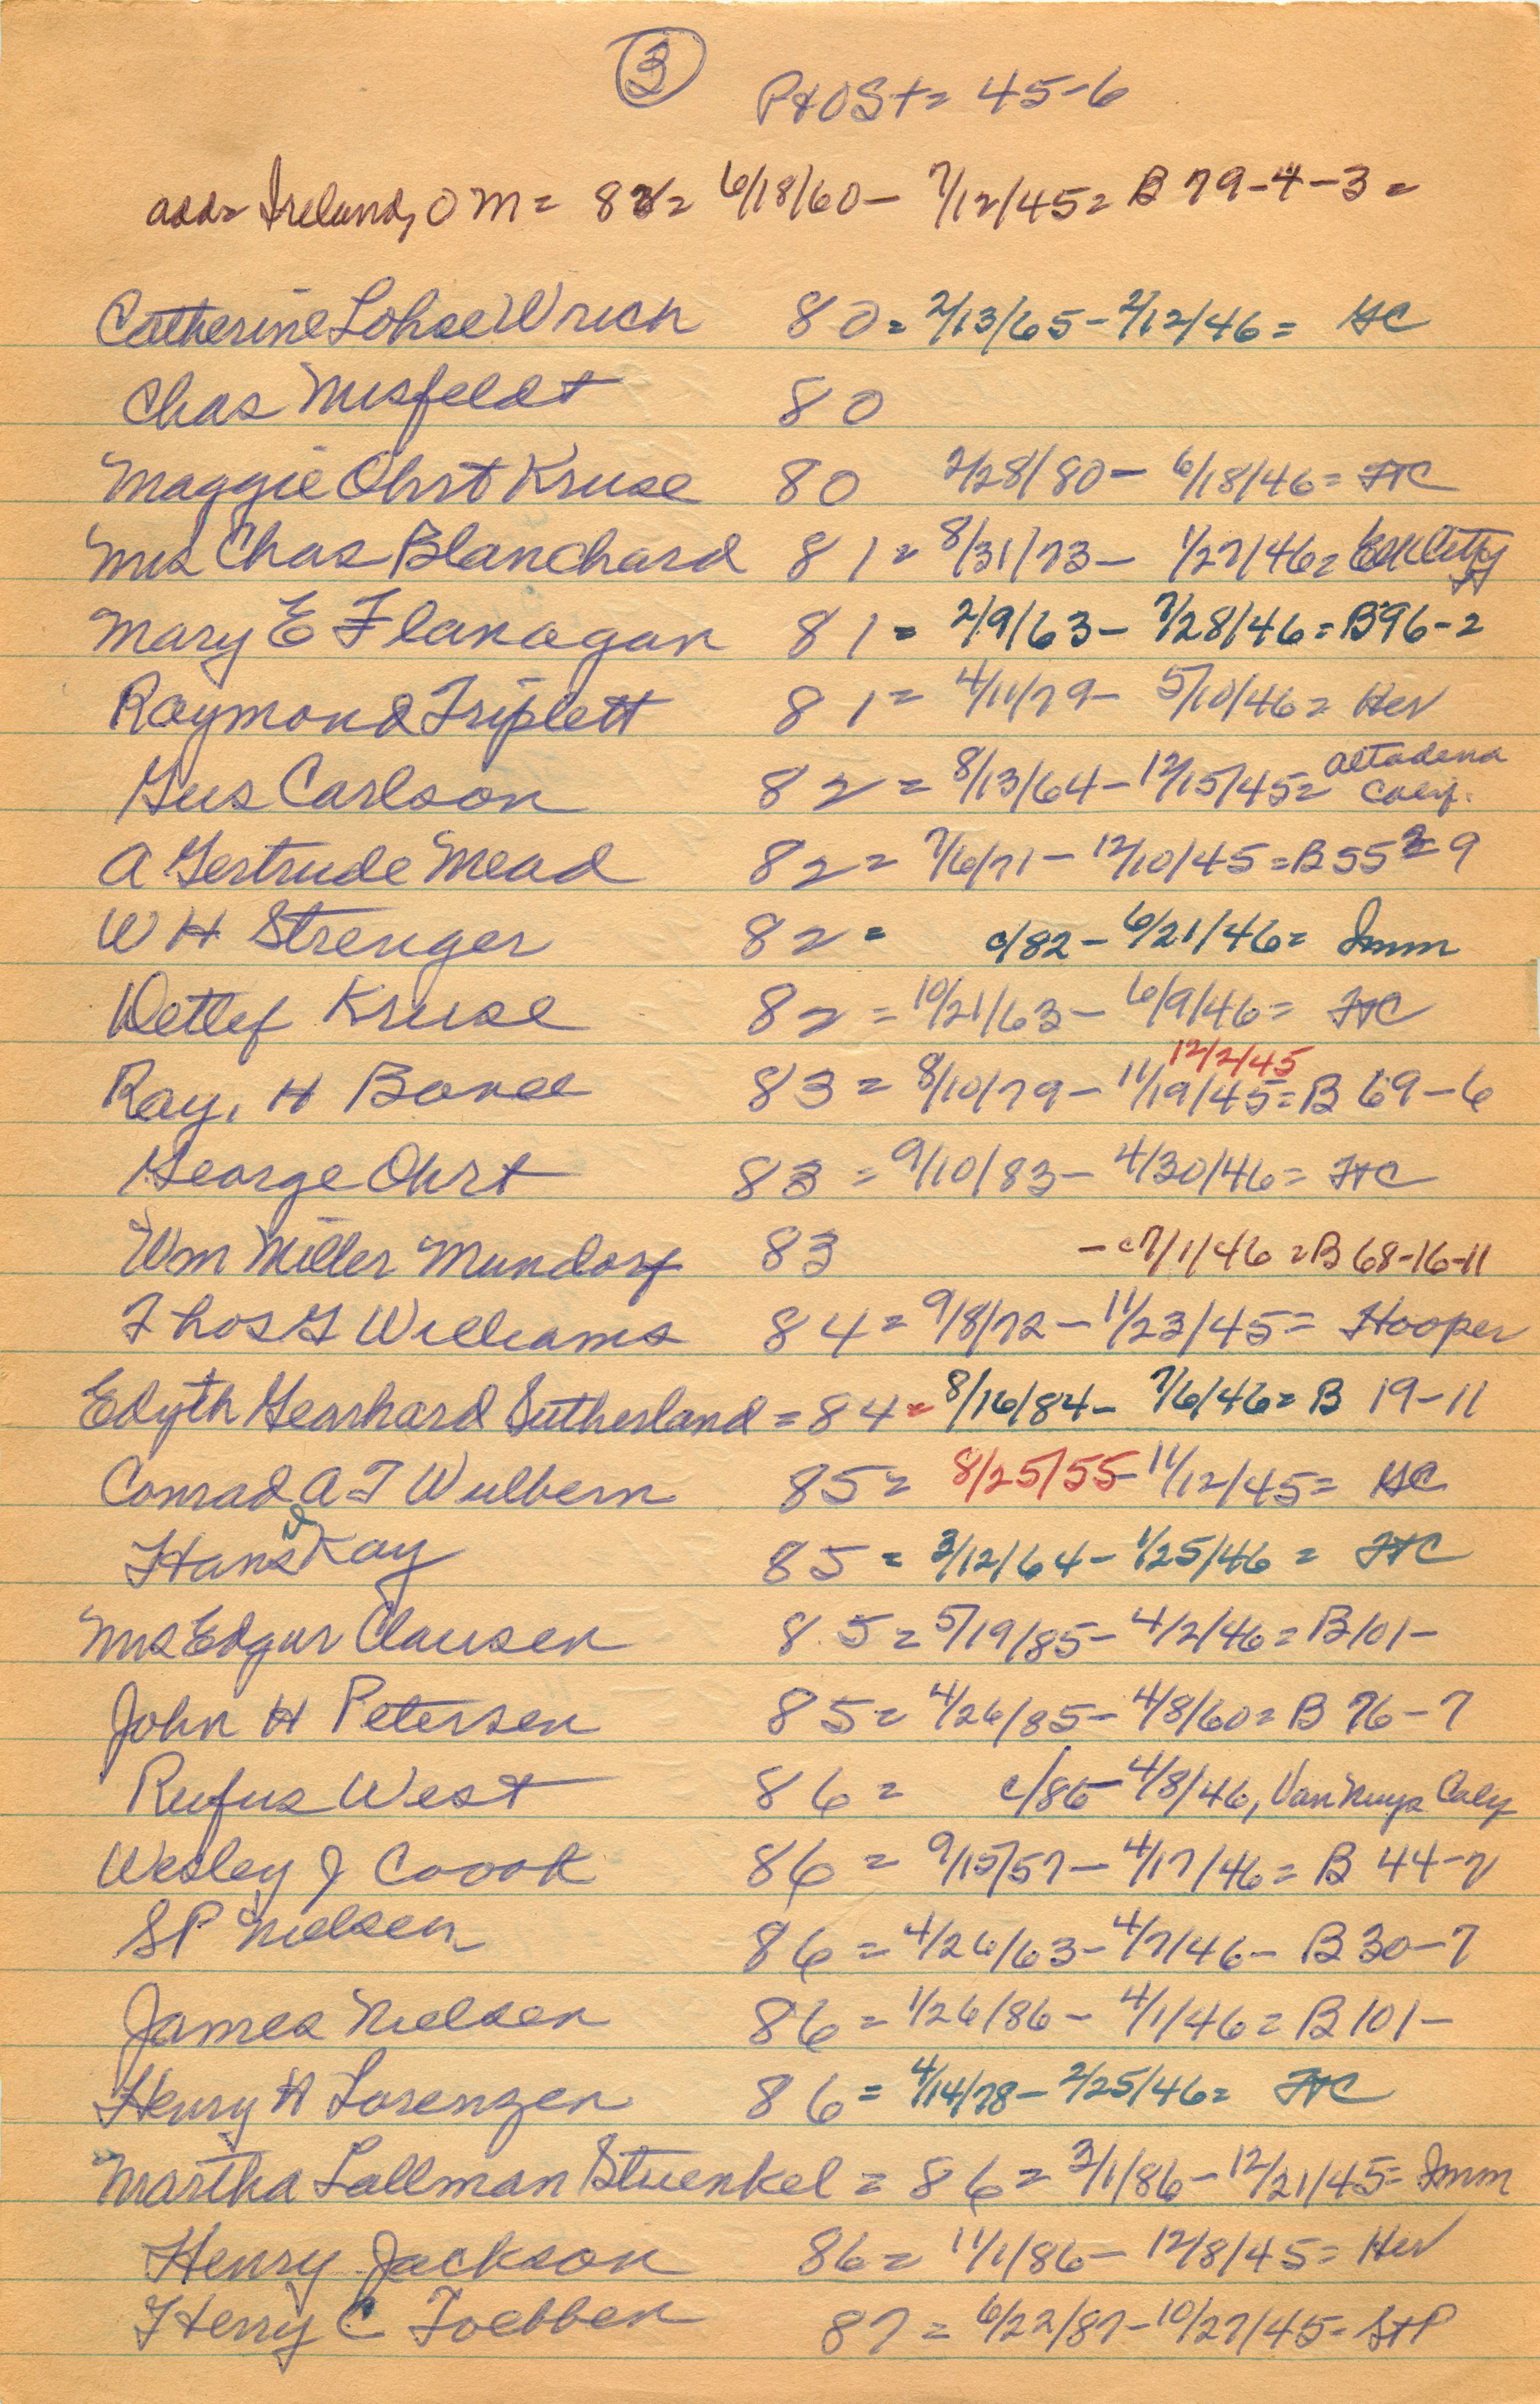 ③ P+OSt= 45-6
add= Ireland, O M = 82= 6/18/60- 7/12/45= B 79-4-3=
Catherine Lohse Wrich 80= 2/13/65-2/12/46= GC
Chas Misfeldt 80
Maggie Ohrt Kruse 80 2/28/80- 6/18/46= FtC
Mrs Chas Blanchard 81= 8/31/73- 1/27/46=
Mary E Flanagan 81= 2/9/63- 7/28/46=B96-2
Raymond Triplett 81= 4/11/79- 5/10/46= Her
Gus Carlson 82= 8/13/64-12/15/45= Altadena Calif.
A Gertrude Mead 82= 7/6/71- 12/10/45=B55=9
W H Strenger 82= c/82-6/21/46= Imm
Detlef Kruse 82=10/21/63- 6/9/46= FtC
12/2/45
Ray. H Bovee 83= 8/10/79- 11/19/45=B 69-6
George Ohrt 83=9/10/83- 4/30/46= FtC
Wm Miller Mundorf 83 -c7/1/46=B 68-16-11
Thos G Williams 84=9/8/72-11/23/45= Hooper
Edyth Gearhard Sutherland=84=8/16/84- 7/6/46=B 19-11
Conrad A F Wulbern 85= 8/25/55-11/12/45= GC
Hans J Kay 85= 3/12/64-1/25/46= FtC
Mrs Edgar Clausen 85=5/19/85-4/2/46=B101-
John H Petersen 85=4/26/85-4/8/60=B 76-7
Rufus West 86= c/86-4/8/46, Van Nuys Calif
Wesley J Cook 86=9/15/57-4/17/46=B 44-7
SP Nielsen 86=4/26/63-4/7/46-B30-7
James Nielsen 86=1/26/86-4/1/46=B101-
Henry H Lorenzen 86=4/14/78-2/25/46= FtC
Martha Lallman Stuenkel=86=3/1/86-12/21/45=Imm
Henry Jackson 86=11/1/86-12/8/45=Her
Henry C Toebben 87=6/22/87-10/27/45=StP